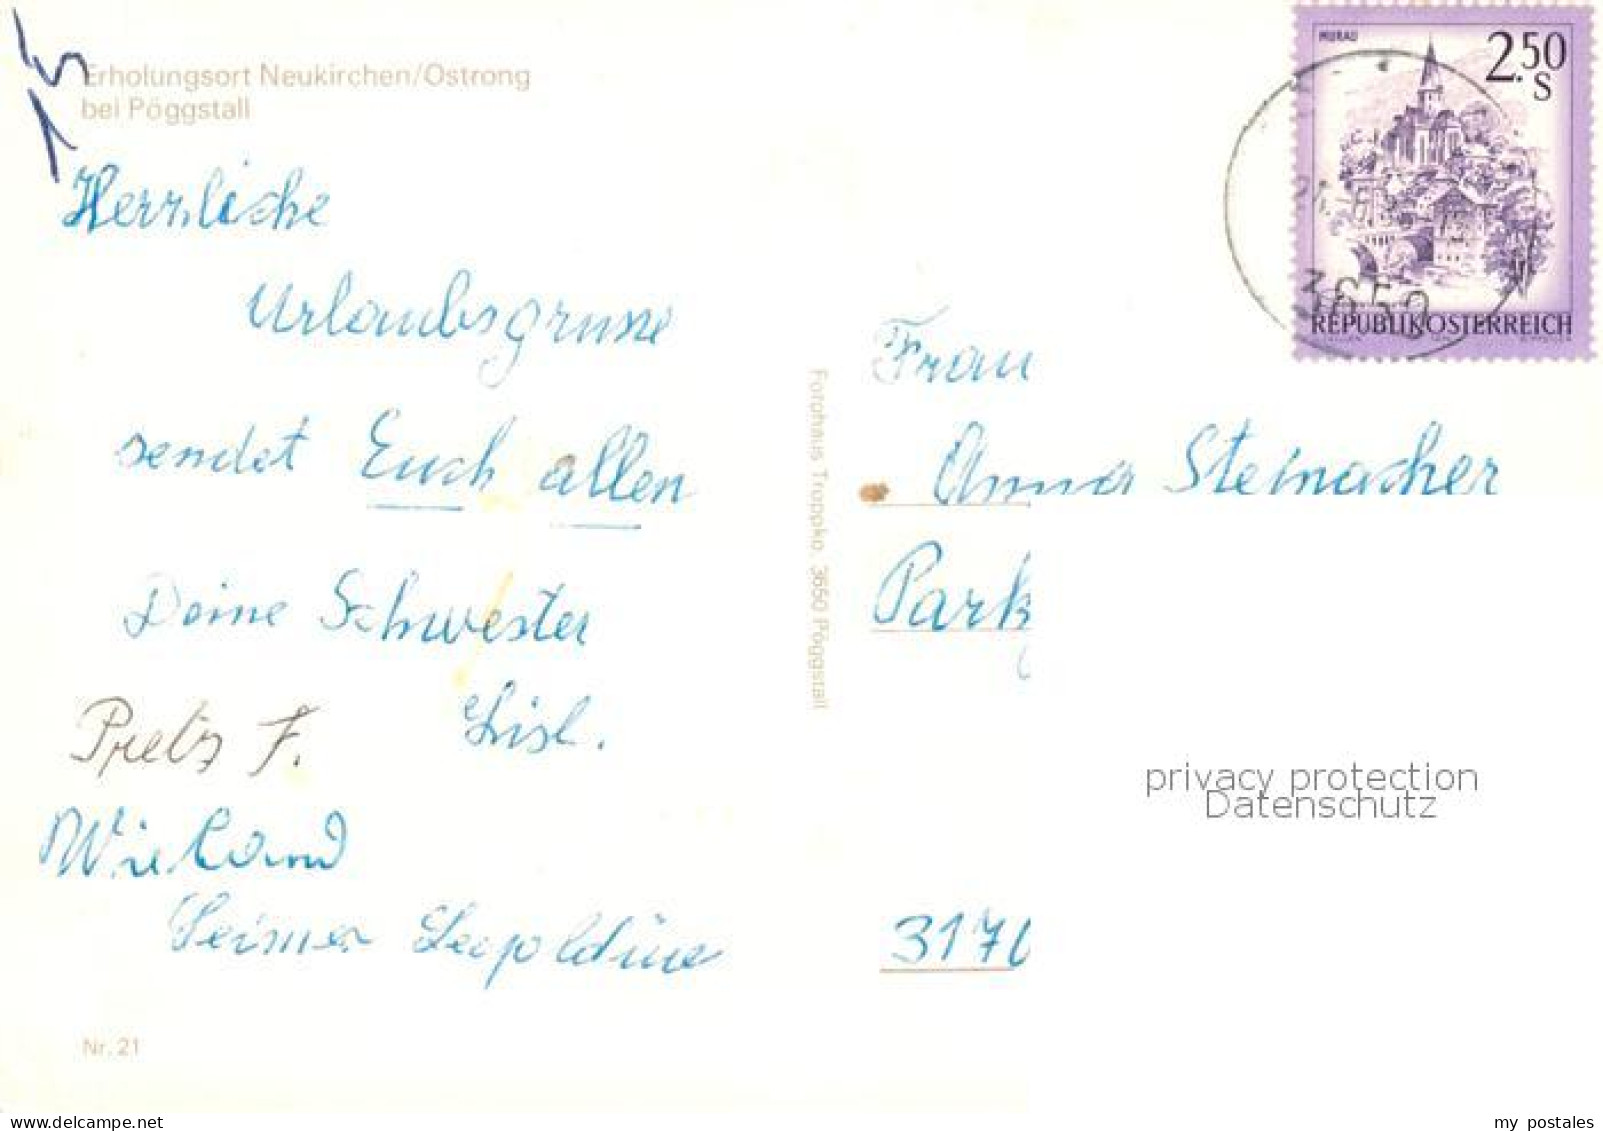 15
Erholungsort Neukirchen/Ostrong
bei Pöggstall
Herrliche
Urlaubsgrüsse
sendet Euch allen
Deine Schwester
Lisl.
Pretz F.
Wieland
Leimer Leopoldine
Nr. 21
Forphaus Trappko, 3650 Pöggstall
MURAU
2.50
S
3650
REPUBLIK ÖSTERREICH
Frau
Anna Steinacher
Park
3170
privacy protection
Datenschutz
delcampe.net
my postales